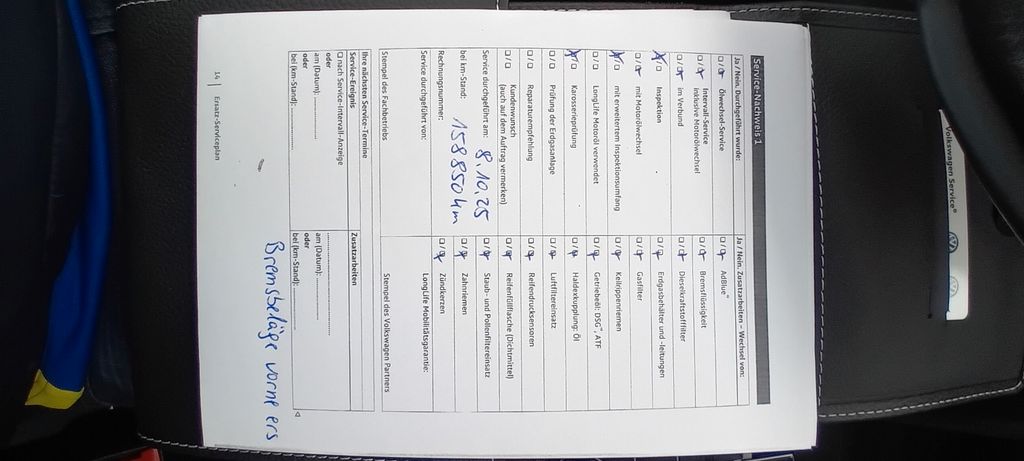 Service-Nachweis 1
Ja / Nein, Durchgeführt wurde:
☐ / ☒ Ölwechsel-Service
☐ / ☒ Intervall-Service
inklusive Motorölwechsel
☐ / ☒ im Verbund
☒ / ☐ Inspektion
☐ / ☒ mit Motorölwechsel
☒ / ☐ mit erweitertem Inspektionsumfang
☐ / ☐ LongLife Motoröl verwendet
☒ / ☐ Karosserieprüfung
☐ / ☐ Prüfung der Erdgasanlage
☐ / ☐ Reparaturempfehlung
☐ / ☐ Kundenwunsch
(auch auf dem Auftrag vermerken)
Service durchgeführt am: 8.10.25
bei km-Stand: 158850 km
Rechnungsnummer:
Service durchgeführt von:
Stempel des Fachbetriebs
Ja / Nein, Zusatzarbeiten – Wechsel von:
☐ / ☒ AdBlue®
☐ / ☒ Bremsflüssigkeit
☐ / ☒ Dieselkraftstofffilter
☐ / ☒ Erdgasbehälter und -leitungen
☐ / ☒ Gasfilter
☐ / ☒ Keilrippenriemen
☐ / ☒ Getriebeöl: DSG®, ATF
☐ / ☒ Haldexkupplung: Öl
☐ / ☒ Luftfiltereinsatz
☐ / ☒ Reifendrucksensoren
☐ / ☒ Reifenfüllflasche (Dichtmittel)
☐ / ☒ Staub- und Pollenfiltereinsatz
☐ / ☒ Zahnriemen
☐ / ☒ Zündkerzen
LongLife Mobilitätsgarantie:
Stempel des Volkswagen Partners
Ihre nächsten Service-Termine
Service-Ereignis
☐ nach Service-Intervall-Anzeige
oder
am (Datum):
oder
bei (km-Stand):
Zusatzarbeiten
am (Datum):
oder
bei (km-Stand):
Bremsbeläge vorne ers
14 Ersatz-Serviceplan
Volkswagen Service®